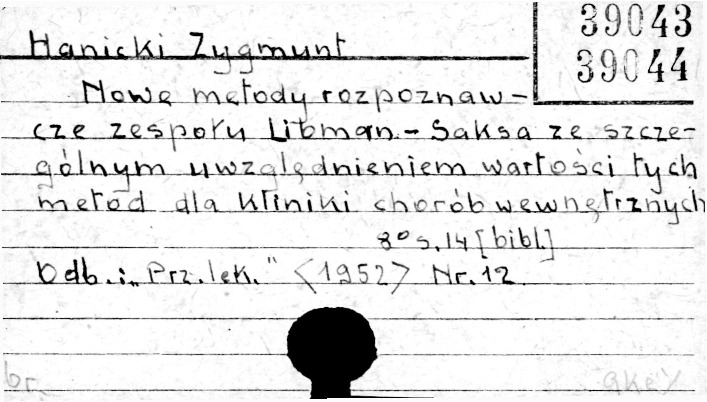 39043
39044
Hanicki Zygmunt
Nowe metody rozpoznaw-
cze zespołu Libman-Saksa ze szcze-
gólnym uwzględnieniem wartości tych
metod dla kliniki chorób wewnętrznych
8° s.14 [bibl.]
Odb. i „Prz. lek." <1952> Nr. 12
br.